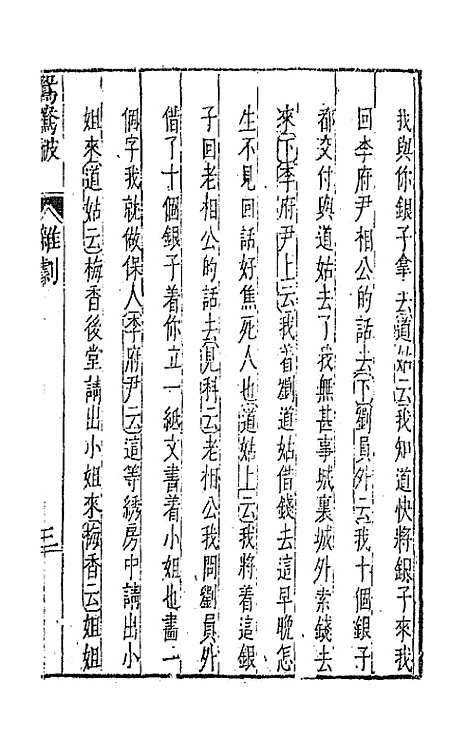 我與你銀子拿去道姑云我知道快將銀子來我
回李府尹相公的話去下劉員外云我十個銀子
都交付與道姑去了我無甚事城裏城外索錢去
來下李府尹上云我着劉道姑借錢去這早晚怎
生不見回話好焦死人也道姑上云我將着這銀
子回老相公的話去見科云老相公我問劉員外
借了十個銀子着你立一紙文書着小姐也畫一
個字我就做保人李府尹云這等綉房中請出小
姐來道姑云梅香後堂請出小姐來梅香云姐姐
鴛鴦被
雜劇
三